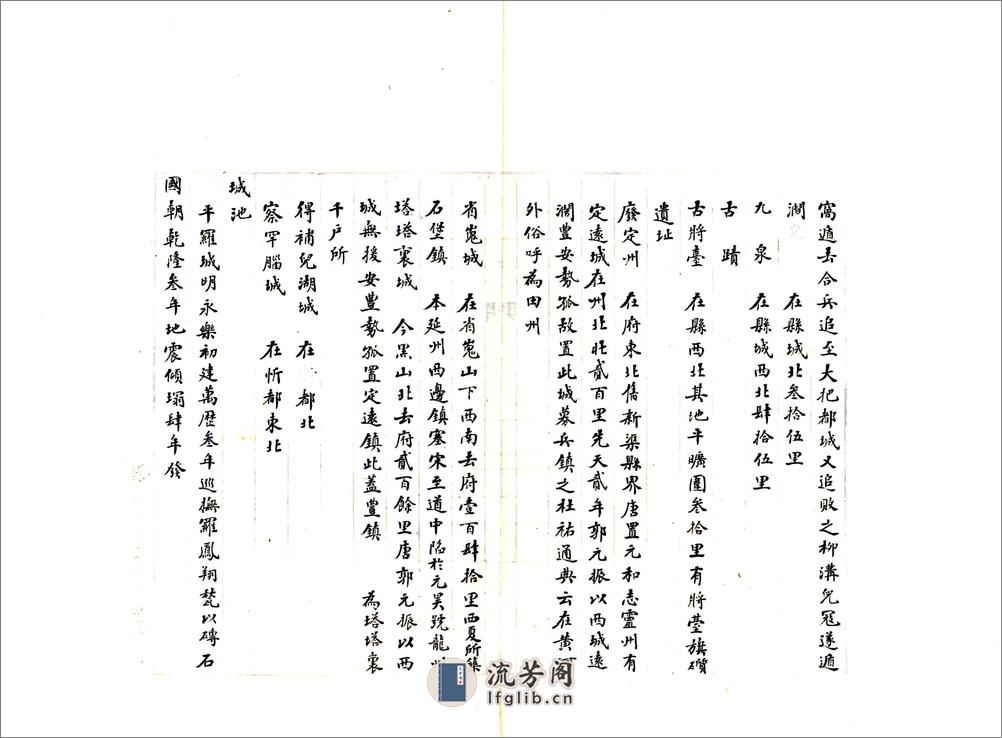 窩遁去合兵追至大把都城又追敗之柳溝兒冦遂遁
澗　在縣城北叁拾伍里
九泉　在縣城西北肆拾伍里
古蹟
古將臺　在縣西北其池平曠圍叁拾里有將臺旗礸
遺址
廢定州　在府東北舊新渠縣界唐置元和志靈州有
定遠城在州北貳百里先天貳年郭元振以西城遠
濶豐安勢孤故置此城募兵鎮之杜祐通典云在黃河
外俗呼為田州
省嵬城　在省嵬山下西南去府壹百肆拾里西夏所築
石堡鎮　本延州西邊鎮塞宋至道中陷於元昊號龍州
塔塔裏城　今黑山北去府貳百餘里唐郭元振以西
城無援安豐勢孤置定遠鎮此蓋豐鎮　為塔塔裏
千戶所
得補兒湖城　在　都北
察罕腦城　在忻都東北
城池
平羅城明永樂初建萬歷叁年巡撫羅鳳翔甃以磚石
國朝乾隆叁年地震傾塌肆年發
流芳阁
lfglib.cn